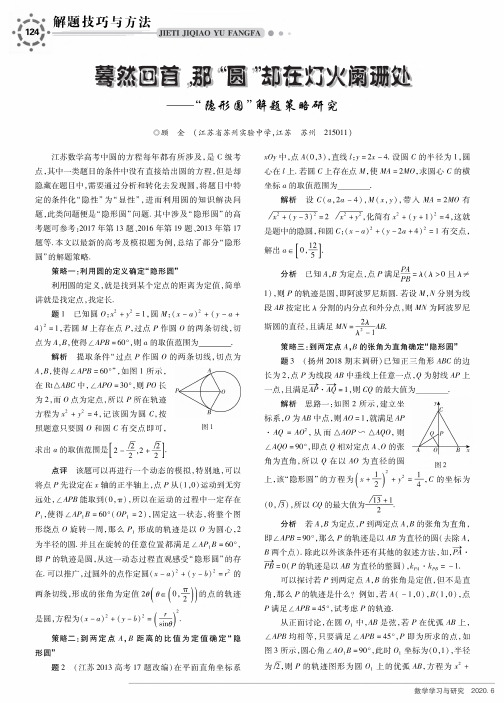 124
解题技巧与方法
JIETI JIQIAO YU FANGFA
蓦然回首,那“圆”却在灯火阑珊处
——“隐形圆”解题策略研究
◎顾　金　(江苏省苏州实验中学,江苏　苏州　215011)
江苏数学高考中圆的方程每年都有所涉及,是 C 级考
点,其中一类题目的条件中没有直接给出圆的方程,但是却
隐藏在题目中,需要通过分析和转化去发现圆,将题目中特
定的条件化“隐性”为“显性”,进而利用圆的知识解决问
题,此类问题便是“隐形圆”问题.其中涉及“隐形圆”的高
考题可参考:2017 年第 13 题,2016 年第 19 题、2013 年第 17
题等.本文以最新的高考及模拟题为例,总结了部分“隐形
圆”的解题策略.
策略一:利用圆的定义确定“隐形圆”
利用圆的定义,就是找到某个定点的距离为定值,简单
讲就是找定点,找定长.
题 1　已知圆 O:x²+y²=1,圆 M:(x-a)²+(y-a+
4)²=1,若圆 M 上存在点 P,过点 P 作圆 O 的两条切线,切
点为 A,B,使得∠APB=60°,则 a 的取值范围为________.
解析　提取条件“过点 P 作圆 O 的两条切线,切点为
A,B,使得∠APB=60°”,如图 1 所示,
在 Rt△ABC 中,∠APO=30°,则 PO 长
为 2,而 O 点为定点,所以 P 所在轨迹
方程为 x²+y²=4,记该圆为圆 C,按
照题意只要圆 O 和圆 C 有交点即可,
P
A
O
B
图 1
求出 a 的取值范围是[2-√2/2,2+√2/2].
点评　该题可以再进行一个动态的模拟,特别地,可以
将点 P 先设定在 x 轴的正半轴上,点 P 从(1,0)运动到无穷
远处,∠APB 能取到(0,π),所以在运动的过程中一定存在
P₁,使得∠AP₁B=60°(OP₁=2),固定这一状态,将整个图
形绕点 O 旋转一周,那么 P₁ 形成的轨迹是以 O 为圆心,2
为半径的圆.并且在旋转的任意位置都满足∠AP₁B=60°,
即 P 的轨迹是圆,从这一动态过程直观感受“隐形圆”的存
在.可以推广,过圆外的点作定圆(x-a)²+(y-b)²=r² 的
两条切线,形成的张角为定值 2θ(θ∈(0,π/2))的点的轨迹
是圆,方程为(x-a)²+(y-b)²=(r/sinθ)².
策略二:到两定点 A,B 距离的比值为定值确定“隐
形圆”
题 2　(江苏 2013 高考 17 题改编)在平面直角坐标系
xOy 中,点 A(0,3),直线 l:y=2x-4.设圆 C 的半径为 1,圆
心在 l 上.若圆 C 上存在点 M,使 MA=2MO,求圆心 C 的横
坐标 a 的取值范围为________.
解析　设 C(a,2a-4),M(x,y),带入 MA=2MO 有
√(x²+(y-3)²)=2√(x²+y²),化简有 x²+(y+1)²=4,这就
是题中的隐圆,和圆 C:(x-a)²+(y-2a+4)²=1 有交点,
解出 a∈[0,12/5].
分析　已知 A,B 为定点,点 P 满足PA/PB=λ(λ>0 且 λ≠
1),则 P 的轨迹是圆,即阿波罗尼斯圆.若设 M,N 分别为线
段 AB 按定比 λ 分割的内分点和外分点,则 MN 为阿波罗尼
斯圆的直径,且满足 MN=2λ/(λ²-1)AB.
策略三:到两定点 A,B 的张角为直角确定“隐形圆”
题 3　(扬州 2018 期末调研)已知正三角形 ABC 的边
长为 2,点 P 为线段 AB 中垂线上任意一点,Q 为射线 AP 上
一点,且满足AP·AQ=1,则 CQ 的最大值为________.
解析　思路一:如图 2 所示,建立坐
标系,O 为 AB 中点,则 AO=1,就满足 AP
·AQ=AO²,从而△AOP∽△AQO,则
∠AQO=90°,即点 Q 相对定点 A,O 的张
角为直角,所以 Q 在以 AO 为直径的圆
y
C
Q
P
A
O
B
x
图 2
上,该“隐形圆”的方程为(x+1/2)²+y²=1/4,C 的坐标为
(0,√3),所以 CQ 的最大值为(√13+1)/2.
分析　若 A,B 为定点,P 到两定点 A,B 的张角为直角,
即∠APB=90°,那么 P 的轨迹是以 AB 为直径的圆(去除 A,
B 两个点).除此以外该条件还有其他的叙述方法,如,PA·
PB=0(P 的轨迹是以 AB 为直径的整圆),kPA·kPB=-1.
可以探讨若 P 到两定点 A,B 的张角是定值,但不是直
角,那么 P 的轨迹是什么?例如,若 A(-1,0),B(1,0),点
P 满足∠APB=45°,试考虑 P 的轨迹.
从正面讨论,在圆 O₁ 中,AB 是弦,若 P 在优弧 AB 上,
∠APB 均相等,只要满足∠APB=45°,P 即为所求的点,如
图 3 所示,圆心角∠AO₁B=90°,此时 O₁ 坐标为(0,1),半径
为√2,则 P 的轨迹图形为圆 O₁ 上的优弧 AB,方程为 x²+
数学学习与研究　2020.6